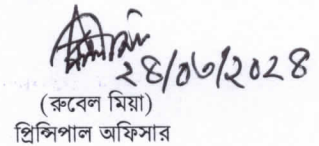 ২৪/০৩/২০২৪
(রুবেল মিয়া)
প্রিন্সিপাল অফিসার